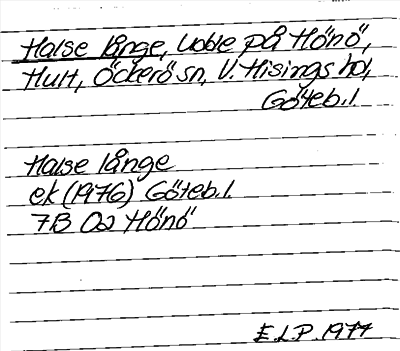 Halse långe, udde på Hönö,
Hult, Öckerö sn, V. Hisings hd,
Göteb. l.
Halse långe
ek (1976) Göteb. l.
7B 0a Hönö
E.L.P. 1977